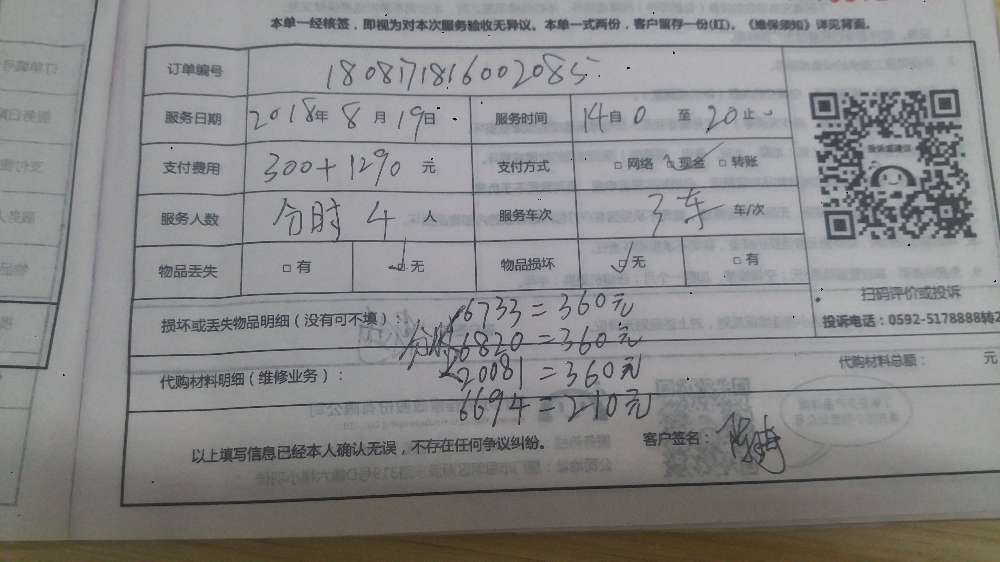 本单一经核签，即视为对本次服务验收无异议。本单一式两份，客户留存一份(红)。《维保须知》详见背面。
订单编号 1808171816002085
服务日期 2018年 8月 19日 服务时间 14自 0 至 20止
支付费用 300+1290 元 支付方式 □ 网络 □ 现金 □ 转账
服务人数 分时 4 人 服务车次 3车 车/次
物品丢失 □ 有 □ 无 物品损坏 □ 无 □ 有
投诉或建议
扫码评价或投诉
投诉电话：0592-5178888转2
损坏或丢失物品明细（没有可不填）：
分时
6733=360元
6820=360元
20081=360元
6694=210元
代购材料明细（维修业务）：
代购材料总额： 元
以上填写信息已经本人确认无误，不存在任何争议纠纷。 客户签名：